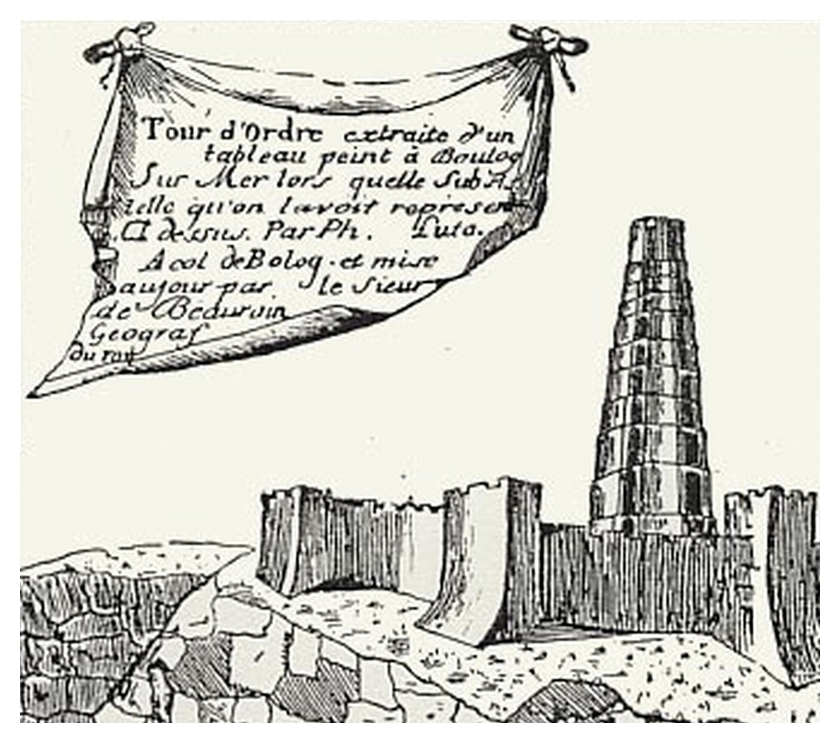 Tour d'Ordre extraite d'un
tableau peint à Boulog
Sur Mer lors quelle Sub
telle qu'on lavoit represen
Ci dessus. Par Ph. Luto.
A col de Bolog. et mise
aujour par le Sieur
de Beaurain
Geograf
du roy